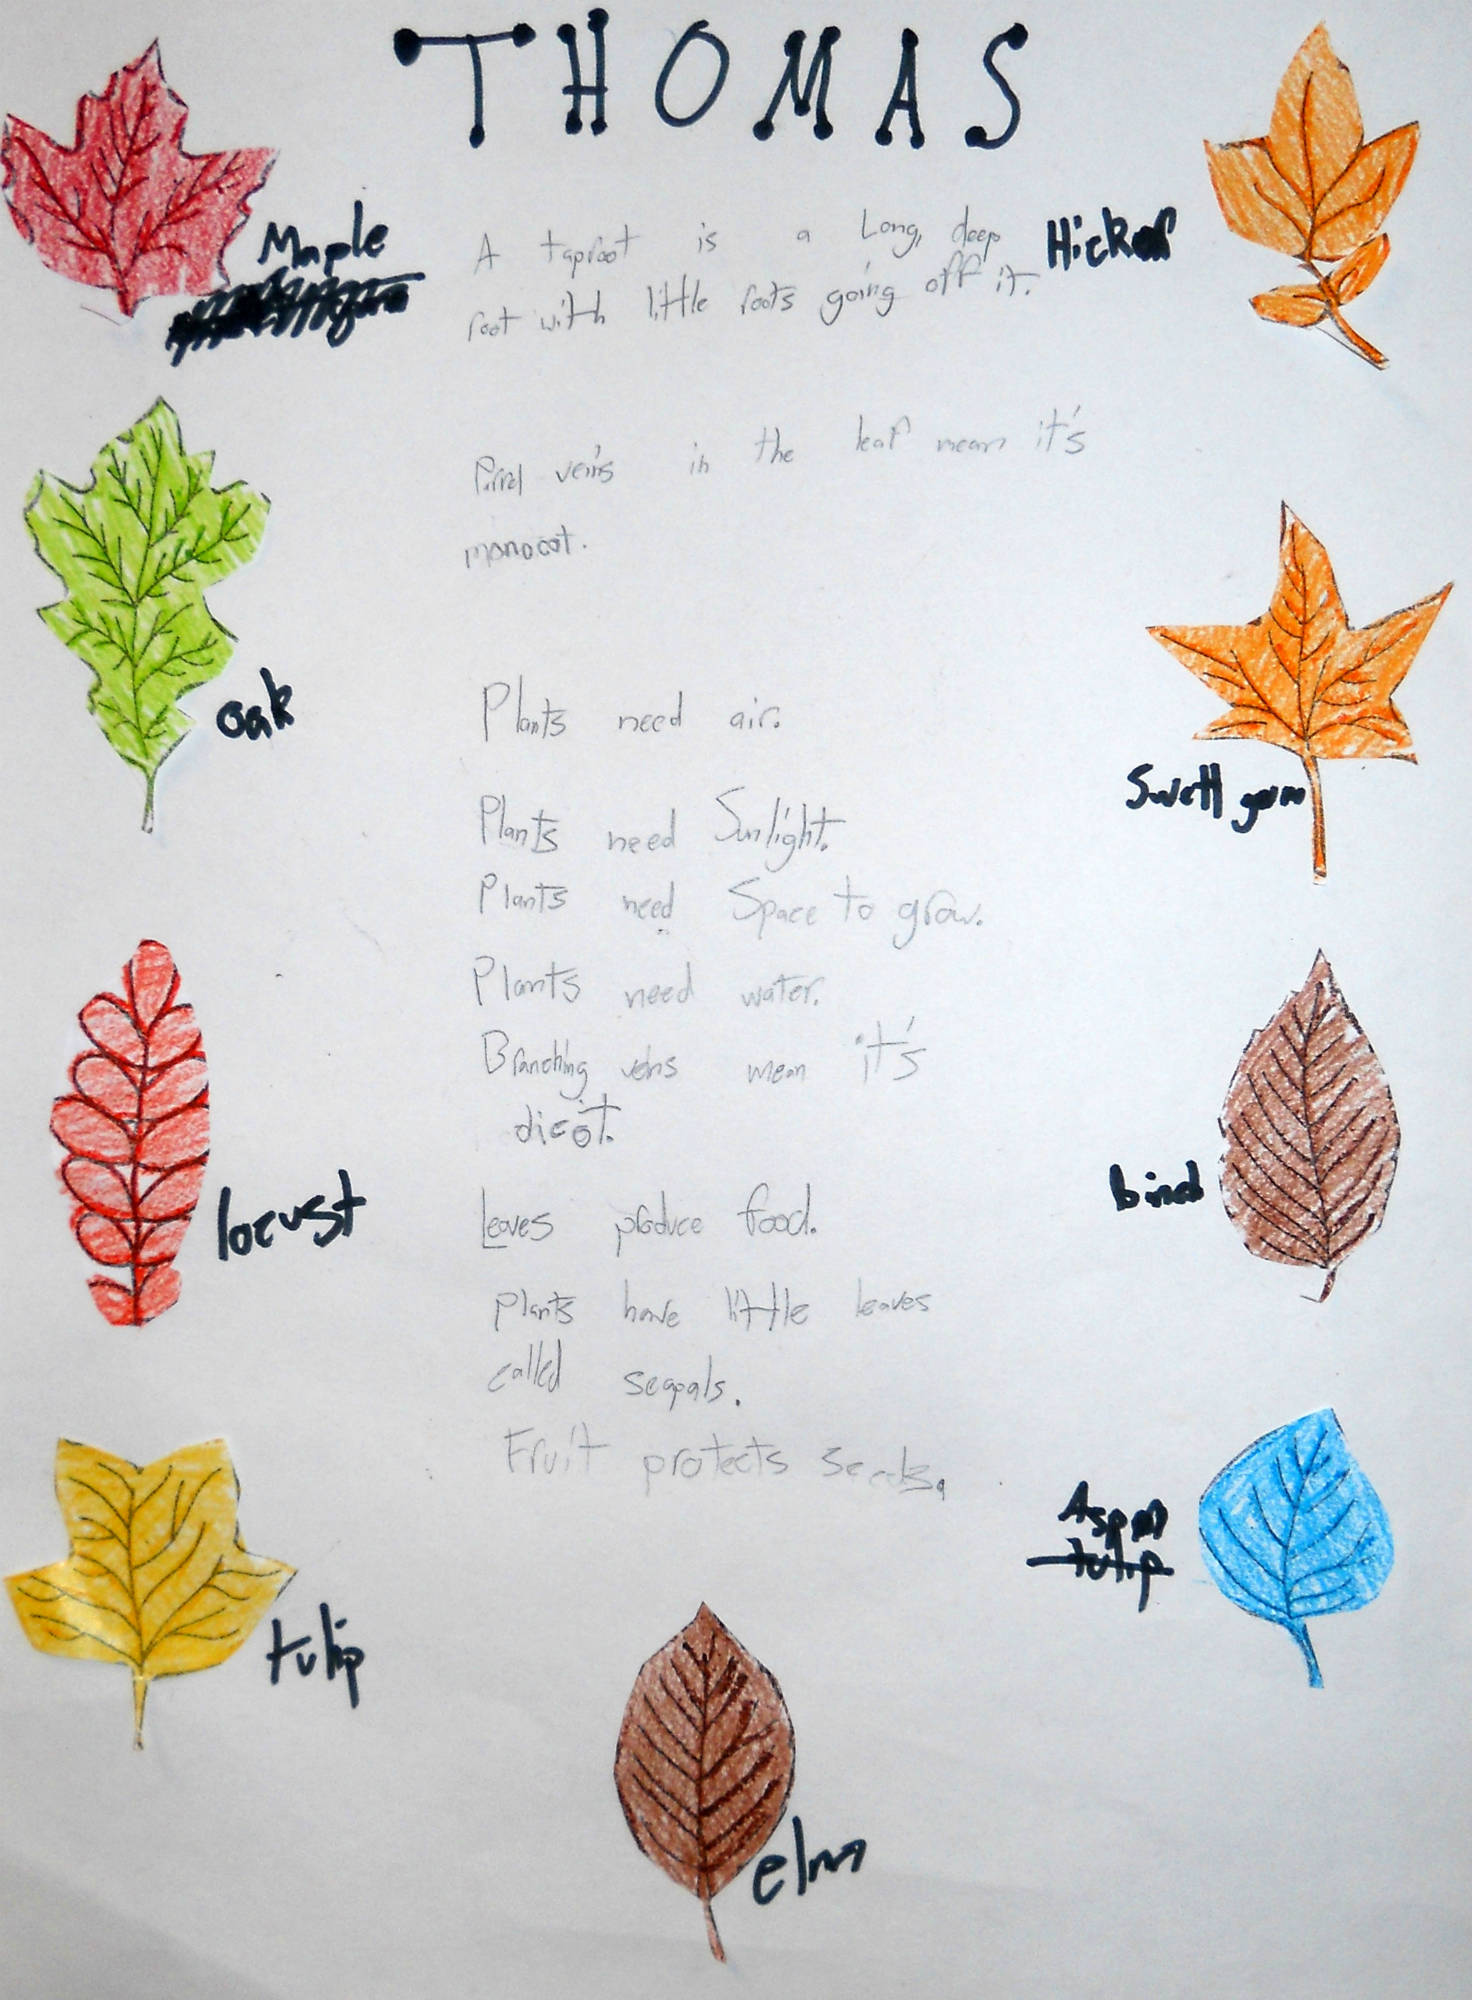 THOMAS
Maple
A taproot is a Long, deep
root with little roots going off it.
veins in the leaf mean it's
monocot.
oak
Plants need air.
Plants need Sunlight.
Swett gum
Plants need Space to grow.
Plants need water.
Branching veins mean it's
dicot.
locust
Leaves produce food.
plants have little leaves
called seapals.
Fruit protects seeds.
Aspen
tulip
tulip
elm